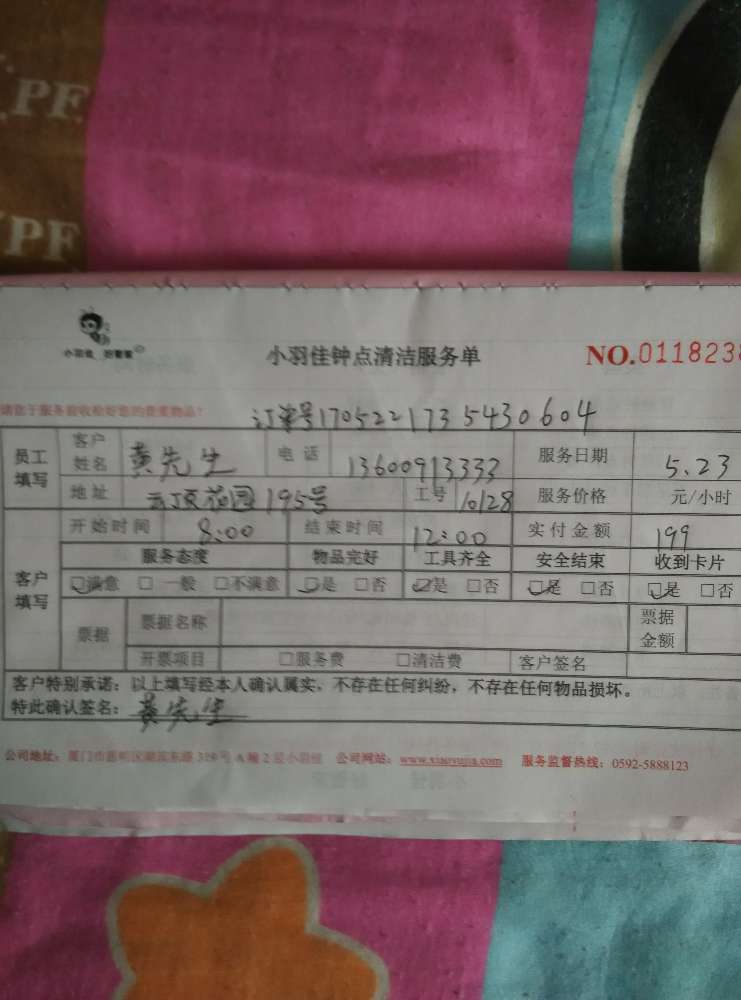 PF
PF
小羽佳 好管家
小羽佳钟点清洁服务单
NO.011823
请您于服务前收检好您的贵重物品!
订单号1705221735430604
员工填写 客户姓名 黄先生 电话 13600913333 服务日期 5.23
地址 云顶花园195号 工号 10128 服务价格 元/小时
开始时间 8:00 结束时间 12:00 实付金额 199
客户填写 服务态度 物品完好 工具齐全 安全结束 收到卡片
☑满意 □一般 □不满意 ☑是 □否 ☑是 □否 ☑是 □否 ☑是 □否
票据 票据名称 票据金额
开票项目 □服务费 □清洁费 客户签名
客户特别承诺：以上填写经本人确认属实，不存在任何纠纷，不存在任何物品损坏。
特此确认签名：黄先生
公司地址：厦门市思明区湖滨东路319号A幢2层小羽佳 公司网站：www.xiaoyujia.com 服务监督热线：0592-5888123